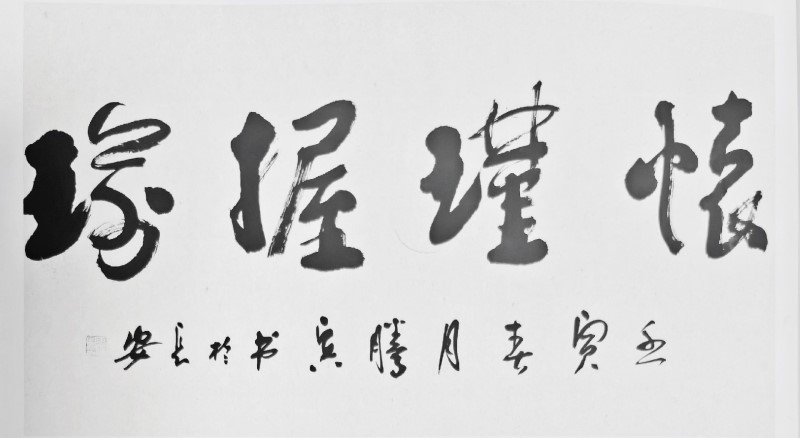 懷瑾握瑜
壬寅春月騰宾书於長安